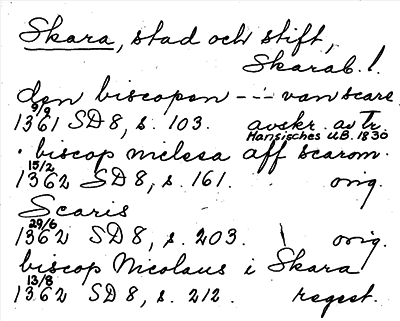 Skara, stad och stift,
Skarab. l.
den biscopen --- van scare
9/9
1361 SD 8, s. 103. avskr. av Tr.
Hansisches UB. 1830
biscop nielssa aff scarom.
15/2
1362 SD 8, s. 161. orig.
Scaris
29/6
1362 SD 8, s. 203. orig.
biscop Nicolaus i Skara
13/8
1362 SD 8, s. 212. regest.